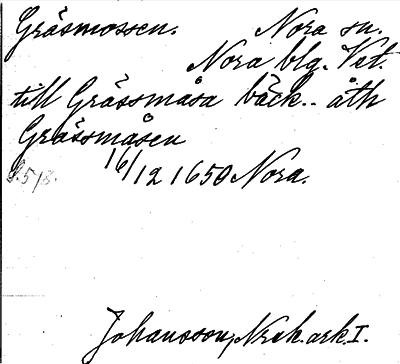 Gräsmossen. Nora sn.
Nora blg. Vst.
till Grässmåsa bäck.. åth
Grässmåsen
16/12 1650 Nora.
Johansson, Nrsk. ark. I.